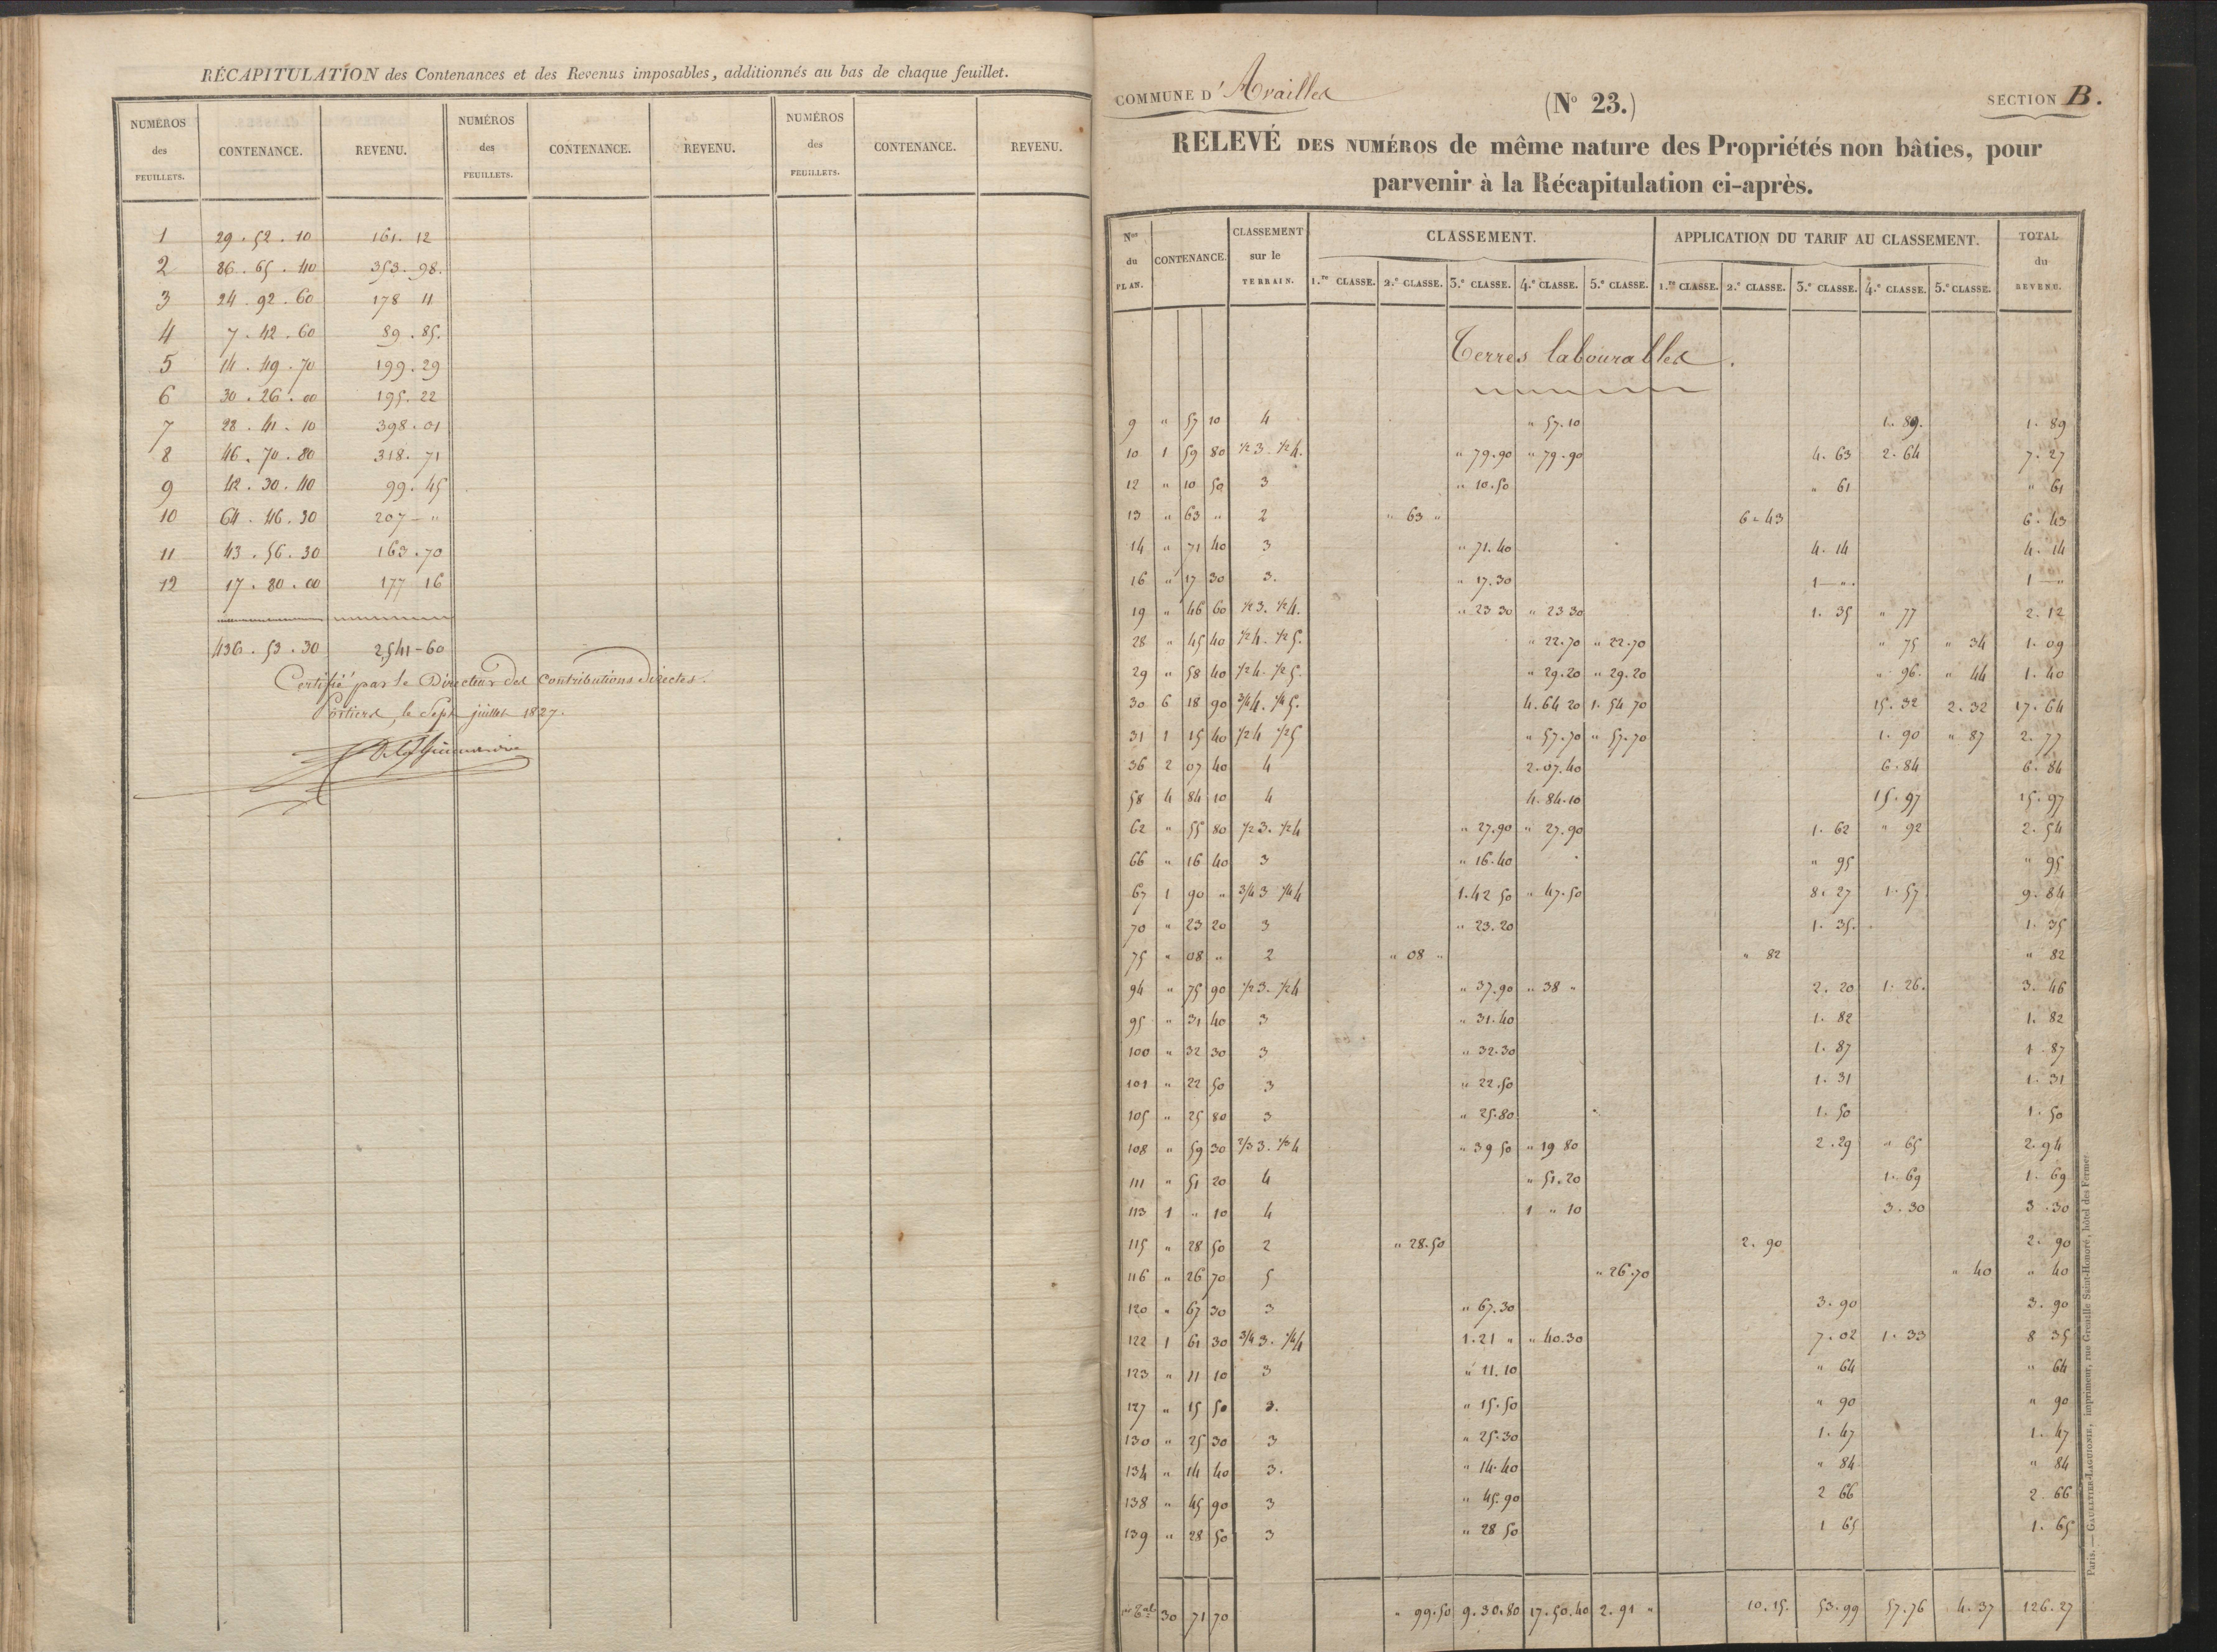 RÉCAPITULATION des Contenances et des Revenus imposables, additionnés au bas de chaque feuillet.
NUMÉROS des FEUILLETS. CONTENANCE. REVENU. NUMÉROS des FEUILLETS. CONTENANCE. REVENU. NUMÉROS des FEUILLETS. CONTENANCE. REVENU.
1 29.52.10 161.12
2 86.65.40 353.98.
3 24.92.60 178 11
4 7.42.60 89.85.
5 14.49.70 199.29
6 30.26.00 195.22
7 28.41.10 398.01
8 46.70.80 318.71
9 42.30.40 99.45
10 64.46.30 207 - "
11 43.56.30 163.70
12 17.80.00 177 16
436.53.30 2,541-60
Certifié par le Directeur des Contributions directes.
Poitiers, le Sept juillet 1827.
COMMUNE D'Availles (No 23.) SECTION B.
RELEVÉ DES NUMÉROS de même nature des Propriétés non bâties, pour
parvenir à la Récapitulation ci-après.
Nos du PLAN. CONTENANCE. CLASSEMENT sur le TERRAIN. CLASSEMENT. APPLICATION DU TARIF AU CLASSEMENT. TOTAL du REVENU.
1.re CLASSE. 2.e CLASSE. 3.e CLASSE. 4.e CLASSE. 5.e CLASSE. 1.re CLASSE. 2.e CLASSE. 3.e CLASSE. 4.e CLASSE. 5.e CLASSE.
Terres labourables.
9 " 57 10 4 " 57.10 1.89. 1.89
10 1 59 80 1/2 3. 1/2 4. " 79.90 " 79.90 4.63 2.64 7.27
12 " 10 50 3 " 10.50 " 61 " 61
13 " 63 " 2 " 63 " 6.43 6.43
14 " 71 40 3 " 71.40 4.14 4.14
16 " 17 30 3. " 17.30 1 — " 1 — "
19 " 46 60 1/2 3. 1/2 4. " 23 30 " 23 30 1.35 " 77 2.12
28 " 45 40 1/2 4. 1/2 5. " 22.70 " 22.70 " 75 " 34 1.09
29 " 58 40 1/2 4. 1/2 5. " 29.20 " 29.20 " 96. " 44 1.40
30 6 18 90 3/4 4. 1/4 5. 4.64 20 1.54 70 15.32 2.32 17.64
31 1 15 40 1/2 4 1/2 5 " 57.70 " 57.70 1.90 " 87 2.77
36 2 07 40 4 2.07.40 6.84 6.84
58 4 84 10 4 4.84.10 15.97 15.97
62 " 55 80 1/2 3. 1/2 4 " 27.90 " 27.90 1.62 " 92 2.54
66 " 16 40 3 " 16.40 " 95 " 95
67 1 90 " 3/4 3 1/4 4 1.42 50 " 47.50 8.27 1.57. 9.84
70 " 23 20 3 " 23.20 1.35. 1.35
75 " 08 " 2 " 08 " " 82 " 82
94 " 75 90 1/2 3. 1/2 4 " 37.90 " 38 " 2.20 1.26. 3.46
95 " 31 40 3 " 31.40 1.82 1.82
100 " 32 30 3 " 32.30 1.87 1.87
101 " 22 50 3 " 22.50 1.31 1.31
105 " 25 80 3 " 25.80 1.50 1.50
108 " 59 30 2/3 3. 1/3 4 " 39 50 " 19 80 2.29 " 65 2.94
111 " 51 20 4 " 51.20 1.69 1.69
113 1 " 10 4 1 " 10 3.30 3.30
115 " 28 50 2 " 28.50 2.90 2.90
116 " 26 70 5 " 26.70 " 40 " 40
120 " 67 30 3 " 67.30 3.90 3.90
122 1 61 30 3/4 3. 1/4 4 1.21 " " 40.30 7.02 1.33 8 35
123 " 11 10 3 " 11.10 " 64 " 64
127 " 15 50 3. " 15.50 " 90 " 90
130 " 25 30 3 " 25.30 1.47 1.47
134 " 14 40 3. " 14.40 " 84 " 84
138 " 45 90 3 " 45.90 2 66 2.66
139 " 28 50 3 " 28 50 1 65 1.65
30 71 70 " 99.50 9.30.80 17.50.40 2.91 " 10.15. 53.99 57.76 4.37 126.27
Paris. — GAULTIER-LAGUIONIE, imprimeur, rue Grenelle Saint-Honoré, hôtel des Fermes.